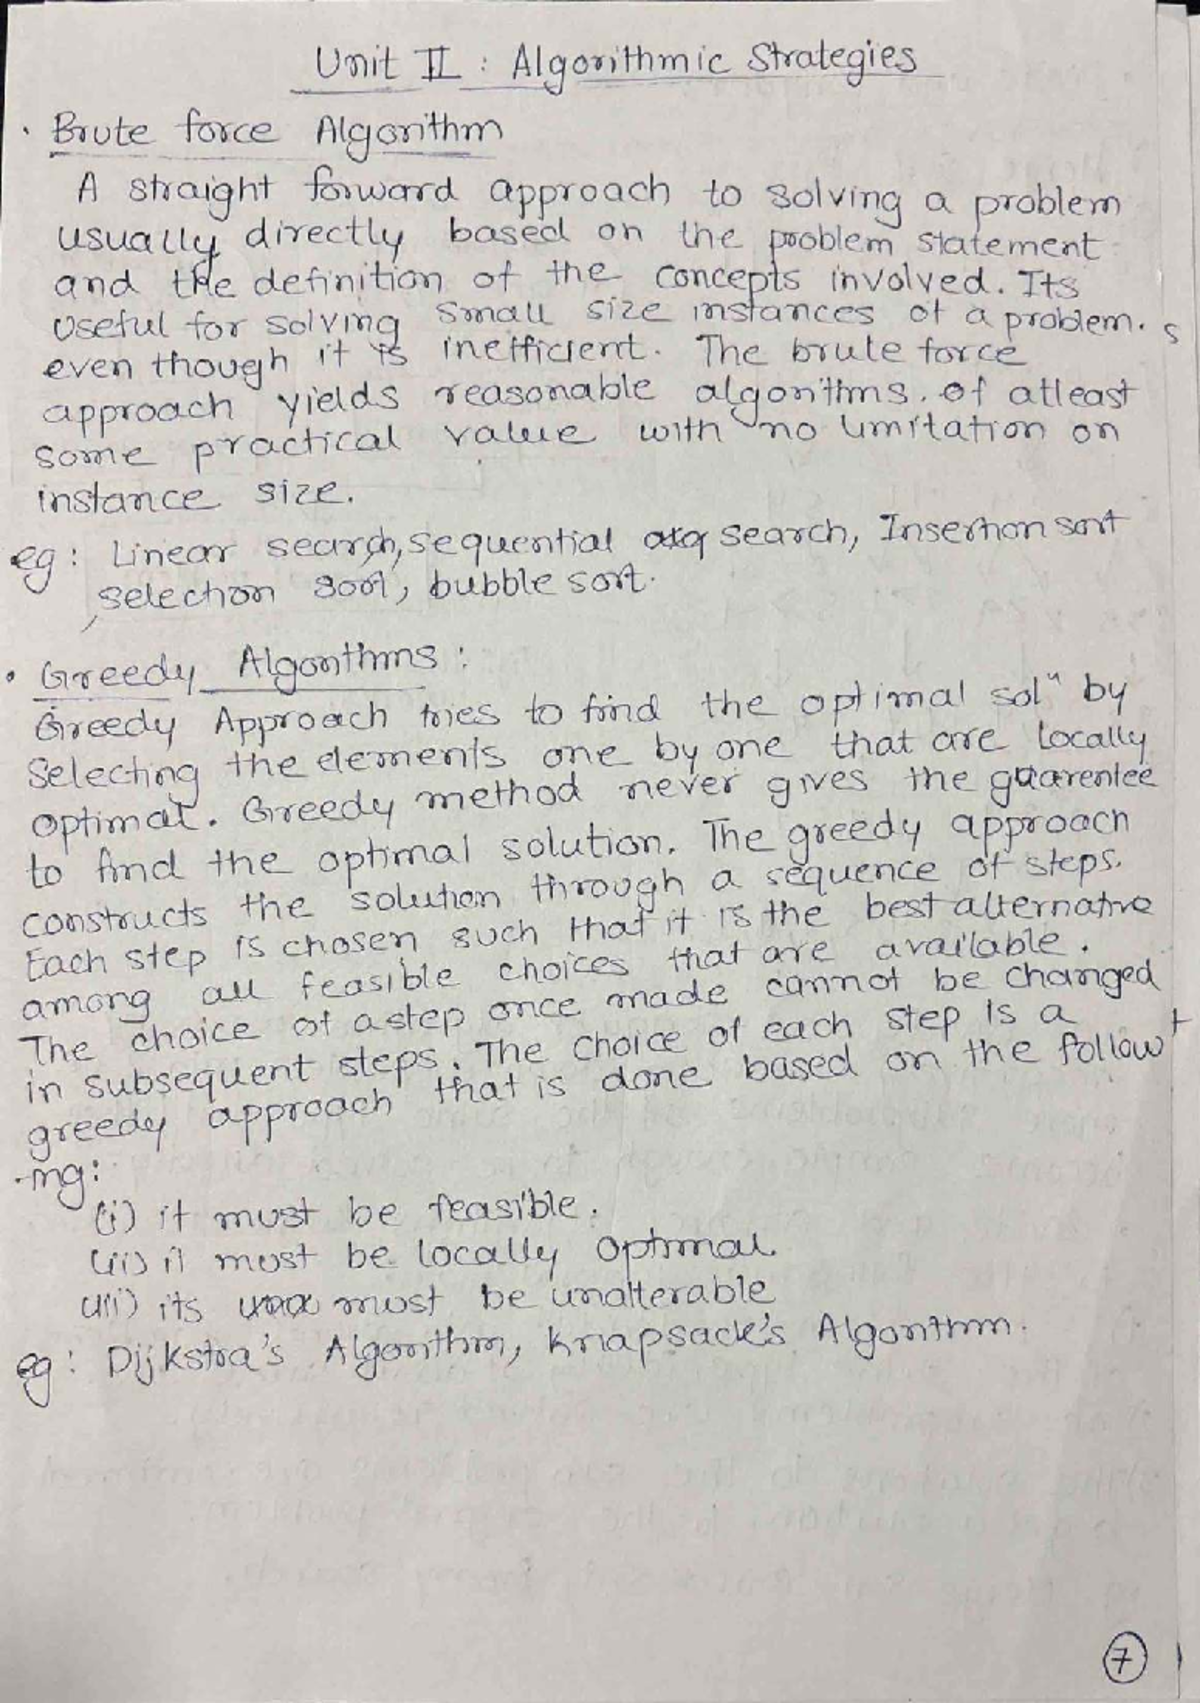 Unit II : Algorithmic Strategies
• Brute force Algorithm
A straight forward approach to solving a problem
usually directly based on the problem statement
and the definition of the concepts involved. Its
useful for solving small size instances of a problem.
even though it is inefficient. The brute force
approach yields reasonable algorithms. of atleast
some practical value with no limitation on
instance size.
eg : Linear search, sequential search, Insertion sort
selection sort, bubble sort.
• Greedy Algorithms :
Greedy Approach tries to find the optimal solⁿ by
selecting the elements one by one that are locally
optimal. Greedy method never gives the guarentee
to find the optimal solution. The greedy approach
constructs the solution through a sequence of steps.
Each step is chosen such that it is the best alternative
among all feasible choices that are available.
The choice of a step once made cannot be changed
in subsequent steps. The choice of each step is a
greedy approach that is done based on the follow
-ing:
(i) it must be feasible.
(ii) it must be locally optimal.
(iii) its must be unalterable
eg : Dijkstra's Algorithm, Knapsack's Algorithm.
7